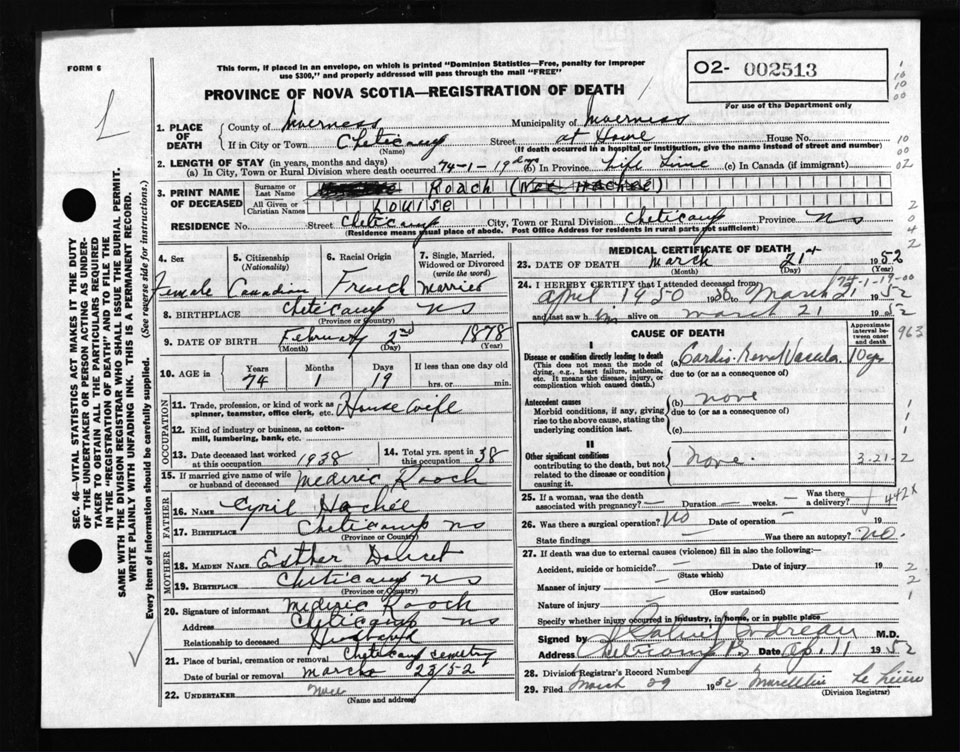 FORM 6
This form, if placed in an envelope, on which is printed "Dominion Statistics—Free, penalty for improper
use $300," and properly addressed will pass through the mail "FREE"
O2- 002513
For use of the Department only
PROVINCE OF NOVA SCOTIA—REGISTRATION OF DEATH
1. PLACE OF DEATH
County of Inverness Municipality of Inverness
If in City or Town Cheticamp Street at Home House No.
(Name) (If death occurred in a hospital or institution, give the name instead of street and number)
2. LENGTH OF STAY (in years, months and days)
(a) In City, Town or Rural Division where death occurred 74-1-19 days (b) In Province Life Time (c) In Canada (if immigrant)
3. PRINT NAME OF DECEASED
Surname or Last Name Roach (Nee Hachee)
All Given or Christian Names Louise
RESIDENCE No. Street Cheticamp City, Town or Rural Division Cheticamp Province NS
(Residence means usual place of abode. Post Office Address for residents in rural parts not sufficient)
4. Sex
Female
5. Citizenship
(Nationality)
Canadian
6. Racial Origin
French
7. Single, Married, Widowed or Divorced
(write the word)
Married
8. BIRTHPLACE Cheticamp NS
(Province or Country)
9. DATE OF BIRTH February 2nd 1878
(Month) (Day) (Year)
10. AGE in Years Months Days If less than one day old
74 1 19 hrs. or min.
OCCUPATION
11. Trade, profession, or kind of work as House Wife
spinner, teamster, office clerk, etc.
12. Kind of industry or business, as cotton-
mill, lumbering, bank, etc.
13. Date deceased last worked
at this occupation 1938
14. Total yrs. spent in
this occupation 38
15. If married give name of wife
or husband of deceased Mederic Roach
FATHER
16. Name Cyril Hachée
17. BIRTHPLACE Cheticamp NS
(Province or Country)
MOTHER
18. MAIDEN NAME Esther
19. BIRTHPLACE Cheticamp NS
(Province or Country)
20. Signature of informant Mederic Roach
Address Cheticamp NS
Relationship to deceased Husband
21. Place of burial, cremation or removal Cheticamp Cemetery
Date of burial or removal March 23/52
22. UNDERTAKER None
(Name and address)
MEDICAL CERTIFICATE OF DEATH
23. DATE OF DEATH March 21st 1952
(Month) (Day) (Year)
74-1-19-00
24. I HEREBY CERTIFY that I attended deceased from
April 1950 to March 21 1952
and last saw him alive on March 21 1952
CAUSE OF DEATH
Approximate interval between onset and death
963
I
Disease or condition directly leading to death (a) Cardio-Renal Vascular 10 yrs
(This does not mean the mode of dying, e.g., heart failure, asthenia, etc. It means the disease, injury, or complication which caused death.)
due to (or as a consequence of)
Antecedent causes (b) none
Morbid conditions, if any, giving rise to the above cause, stating the underlying condition last.
due to (or as a consequence of)
(c)
II
Other significant conditions none.
contributing to the death, but not related to the disease or condition causing it.
3-21-2
25. If a woman, was the death associated with pregnancy? — Duration — weeks. — Was there a delivery?
442X
26. Was there surgical operation? No Date of operation — 19
State findings — Was there an autopsy? No.
27. If death was due to external causes (violence) fill in also the following:—
Accident, suicide or homicide? — Date of injury 19
(State which)
Manner of injury —
(How sustained)
Nature of injury —
Specify whether injury occurred in industry, in home, or in public place
Signed by M.D.
Address Cheticamp Date Ap. 11 1952
28. Division Registrar's Record Number
29. Filed March 29 1952
(Division Registrar)
SEC. 46—VITAL STATISTICS ACT MAKES IT THE DUTY
OF THE UNDERTAKER OR PERSON ACTING AS UNDER-
TAKER TO OBTAIN ALL THE PARTICULARS REQUIRED
IN THE "REGISTRATION OF DEATH" AND TO FILE THE
SAME WITH THE DIVISION REGISTRAR WHO SHALL ISSUE THE BURIAL PERMIT.
WRITE PLAINLY WITH UNFADING INK. THIS IS A PERMANENT RECORD.
Every item of information should be carefully supplied. (See reverse side for instructions.)